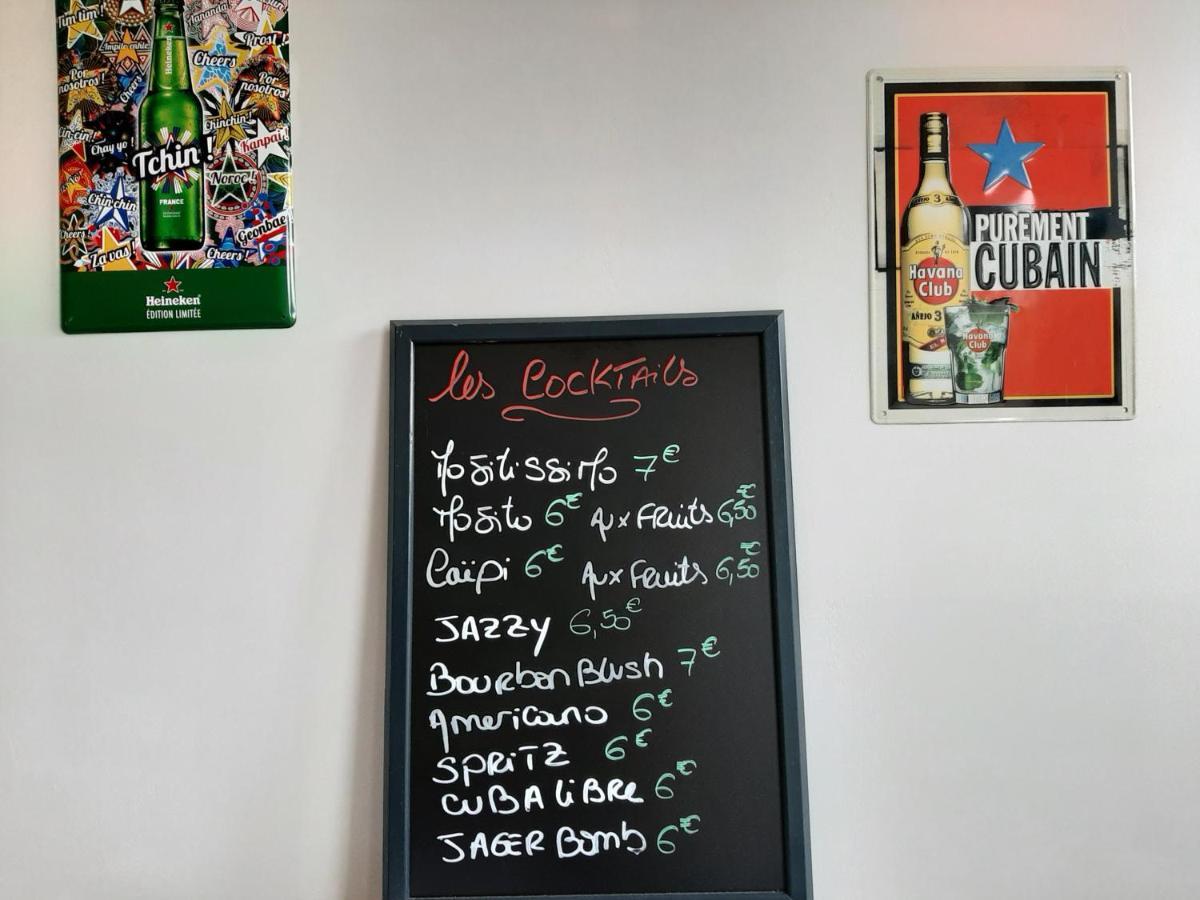 Tim tim !
Ampile enkle
Por nosotros !
Cheers
Chay yo !
Chin chin
Cheers !
Za vas !
Heineken
Tchin !
FRANCE
Prost !
Cheers
Por nosotros !
Chinchin !
Kanpai !
Noroc !
Geonbae
Cheers !
Heineken
ÉDITION LIMITÉE
les COCKTAILS
Mojitissimo 7€
Mojito 6€ Aux Fruits 6,50€
Caïpi 6€ Aux Fruits 6,50€
JAZZY 6,50€
Bourbon Blush 7€
Americano 6€
SPRITZ 6€
CUBA LIBRE 6€
JAGER Bomb 6€
AÑEJO 3
Havana
Club
AÑEJO 3
PUREMENT
CUBAIN
Havana
Club